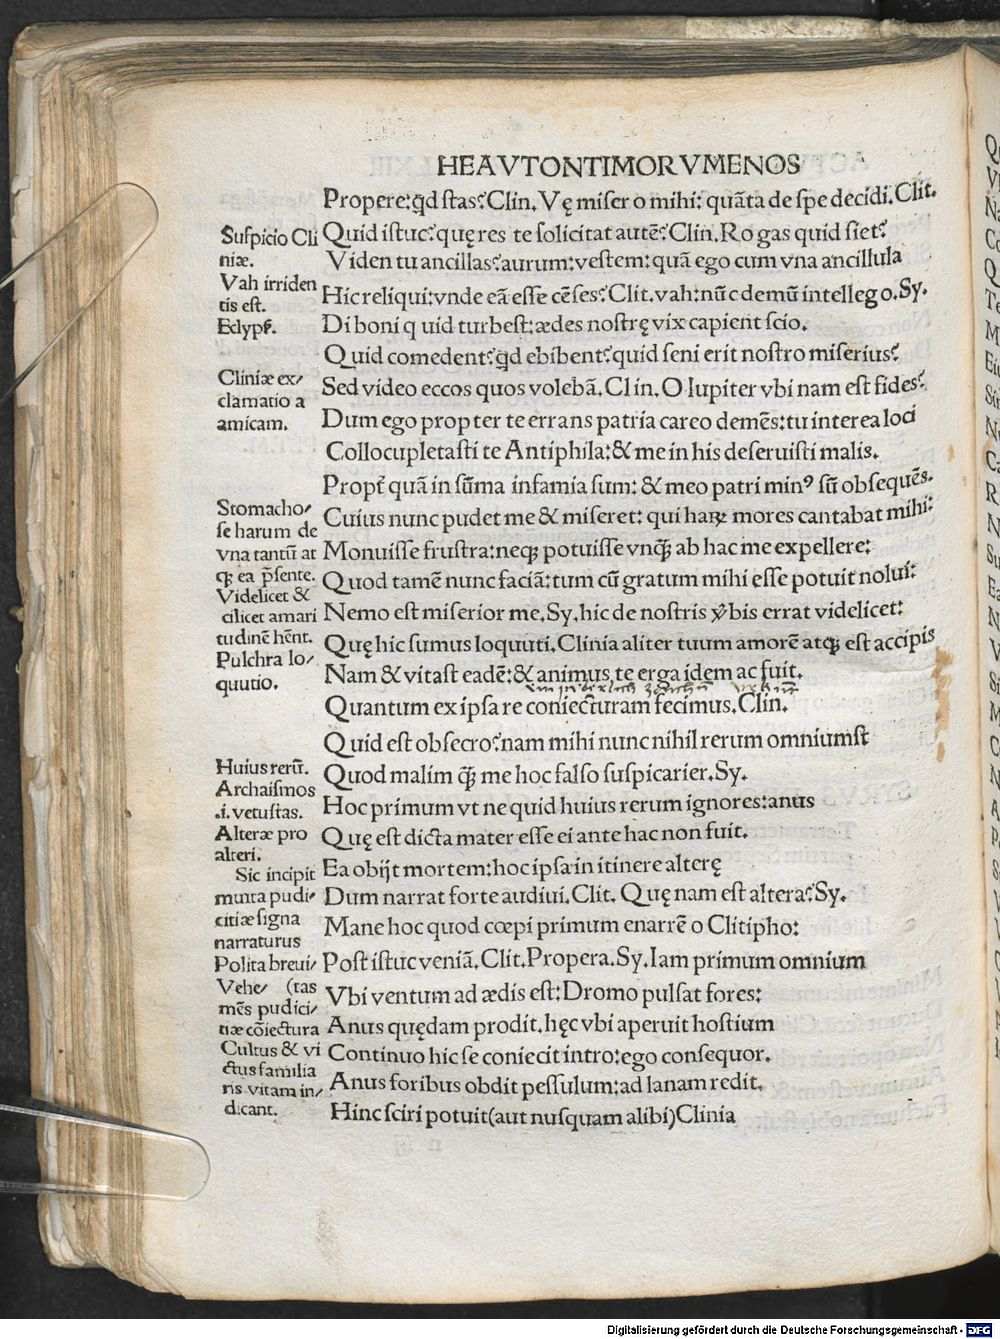 HEAVTONTIMORVMENOS
Propere: qd stas? Clin. Vę miser o mihi: quāta de spe decidi. Clit.
Quid istuc? quę res te solicitat autē? Clin. Rogas quid siet?
Viden tu ancillas? aurum: vestem: quā ego cum vna ancillula
Hic reliqui: vnde eā esse cēses? Clit. vah: nūc demū intellego. Sy.
Di boni quid turbest: ædes nostrę vix capient scio.
Quid comedent? qd ebibent? quid seni erit nostro miserius?
Sed video eccos quos volebā. Clin. O Iupiter vbi nam est fides?
Dum ego propter te errans patria careo demēs: tu interea loci
Collocupletasti te Antiphila: & me in his deseruisti malis.
Propt̃ quā in sūma infamia sum: & meo patri minꝰ sū obsequēs.
Cuius nunc pudet me & miseret: qui haꝝ mores cantabat mihi:
Monuisse frustra: neqꝫ potuisse vnq̄ꝫ ab hac me expellere:
Quod tamē nunc faciā: tum cū gratum mihi esse potuit nolui:
Nemo est miserior me. Sy. hic de nostris v̄bis errat videlicet:
Quę hic sumus loquuti. Clinia aliter tuum amorē atqꝫ est accipis
Nam & vitast eadē: & animus te erga idem ac fuit.
Quantum ex ipsa re coniecturam fecimus. Clin.
Quid est obsecro? nam mihi nunc nihil rerum omniumst
Quod malim q̄ꝫ me hoc falso suspicarier. Sy.
Hoc primum vt ne quid huius rerum ignores: anus
Quę est dicta mater esse ei ante hac non fuit.
Ea obijt mortem: hoc ipsa in itinere alterę
Dum narrat forte audiui. Clit. Quę nam est altera? Sy.
Mane hoc quod cœpi primum enarrē o Clitipho:
Post istuc veniā. Clit. Propera. Sy. Iam primum omnium
Vbi ventum ad ædis est: Dromo pulsat fores:
Anus quędam prodit. hęc vbi aperuit hostium
Continuo hic se coniecit intro: ego consequor.
Anus foribus obdit pessulum: ad lanam redit.
Hinc sciri potuit (aut nusquam alibi) Clinia
Suspicio Cli
niæ.
Vah irriden
tis est.
Eclyps̄.
Cliniæ ex/
clamatio a
amicam.
Stomacho/
se harum de
vna tantū at
qꝫ ea p̄sente.
Videlicet &
cilicet amari
tudinē hēnt.
Pulchra lo/
quutio.
Huius rerū.
Archaismos
.i. vetustas.
Alteræ pro
alteri.
Sic incipit
multa pudi/
citiæ signa
narraturus
Polita breui/
Vehe/ (tas
mēs pudici/
tiæ cōiectura
Cultus & vi
ctus familia
ris vitam in/
dicant.
Digitalisierung gefördert durch die Deutsche Forschungsgemeinschaft - DFG